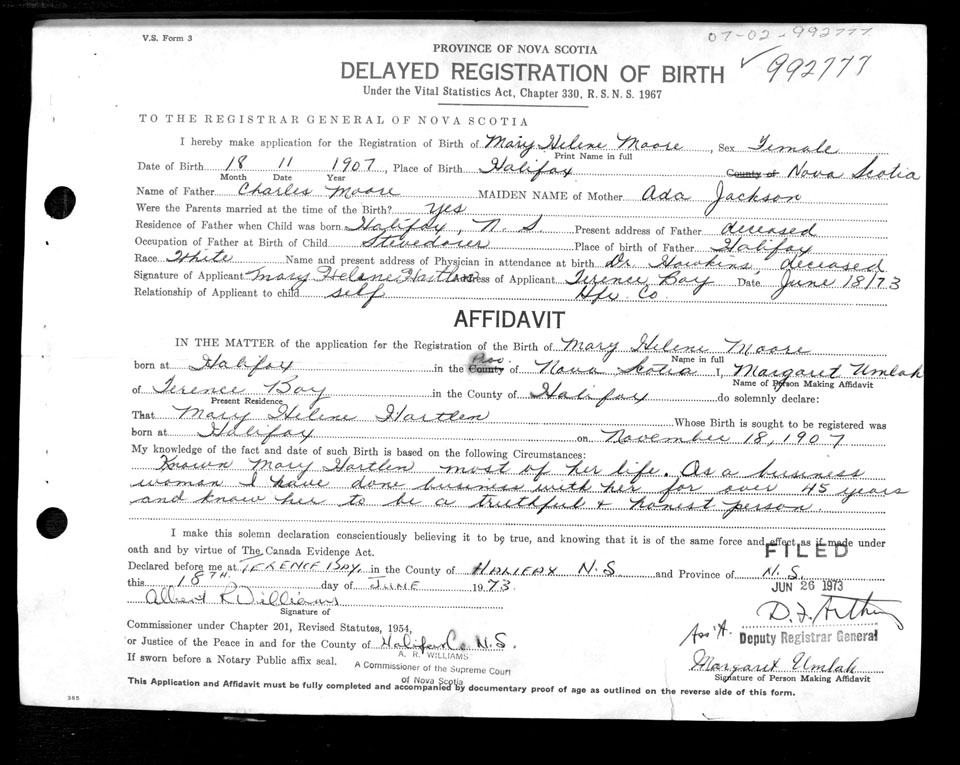 V.S. Form 3
07-02-992777
PROVINCE OF NOVA SCOTIA
✓992777
DELAYED REGISTRATION OF BIRTH
Under the Vital Statistics Act, Chapter 330, R.S.N.S. 1967
TO THE REGISTRAR GENERAL OF NOVA SCOTIA
I hereby make application for the Registration of Birth of Mary Helene Moore, Sex Female
Print Name in full
Date of Birth 18 11 1907, Place of Birth Halifax County of Nova Scotia
Month Date Year
Name of Father Charles Moore MAIDEN NAME of Mother Ada Jackson
Were the Parents married at the time of the Birth? Yes
Residence of Father when Child was born Halifax, N. S Present address of Father deceased
Occupation of Father at Birth of Child Stevedorer Place of birth of Father Halifax
Race White Name and present address of Physician in attendance at birth Dr. Hawkins, deceased
Signature of Applicant Mary Helene Hartlen Address of Applicant Terence Bay Date June 18/73
Relationship of Applicant to child self Hfx. Co.
AFFIDAVIT
IN THE MATTER of the application for the Registration of the Birth of Mary Helene Moore
Name in full
born at Halifax in the County Prov. of Nova Scotia I, Margaret Umlah
Name of Person Making Affidavit
of Terence Bay in the County of Halifax do solemnly declare:
Present Residence
That Mary Helene Hartlen Whose Birth is sought to be registered was
born at Halifax on November 18, 1907
My knowledge of the fact and date of such Birth is based on the following Circumstances:
Known Mary Hartlen most of her life. As a business
woman I have done business with her for over 45 years
and know her to be a truthful & honest person.
I make this solemn declaration conscientiously believing it to be true, and knowing that it is of the same force and effect as if made under
oath and by virtue of The Canada Evidence Act.
FILED
Declared before me at TERENCE BAY, in the County of HALIFAX N.S. and Province of N.S.
this 18TH. day of JUNE 1973.
JUN 26 1973
Albert R Williams
Signature of
D.F. Arthur
Commissioner under Chapter 201, Revised Statutes, 1954,
Ass't. Deputy Registrar General
or Justice of the Peace in and for the County of Halifax Co N.S.
A. R. WILLIAMS
If sworn before a Notary Public affix seal.
A Commissioner of the Supreme Court
of Nova Scotia
Margaret Umlah
Signature of Person Making Affidavit
This Application and Affidavit must be fully completed and accompanied by documentary proof of age as outlined on the reverse side of this form.
385